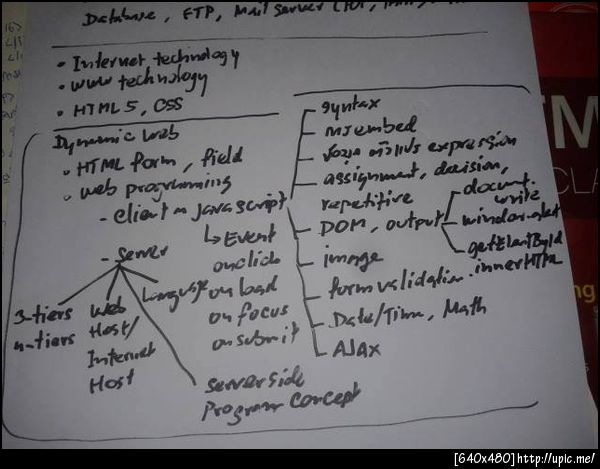 Database, FTP, Mail Server (POP,
• Internet technology
• www technology
• HTML 5, CSS
Dynamic Web
• HTML form, field
• web programming
- client → javascript
↳ Event
onclick
on load
on focus
onsubmit
- Server
3-tiers
n-tiers
Web
Host/
Internet
Host
Language
Server side
Program concept
- syntax
- การembed
- ข้อมูล ตัวแปร expression
- assignment, decision,
repetitive
- DOM, output
document.
write
window.alert
getElementById
.innerHTML
- image
- form validation
- Date/Time, Math
- AJAX
[640x480]http://upic.me/